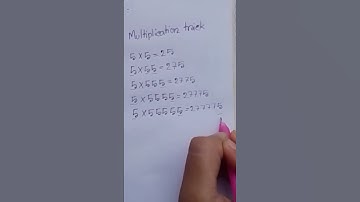 Multiplication track
5 × 5 = 25
5 × 55 = 275
5 × 555 = 2775
5 × 5555 = 27775
5 × 55555 = 277775